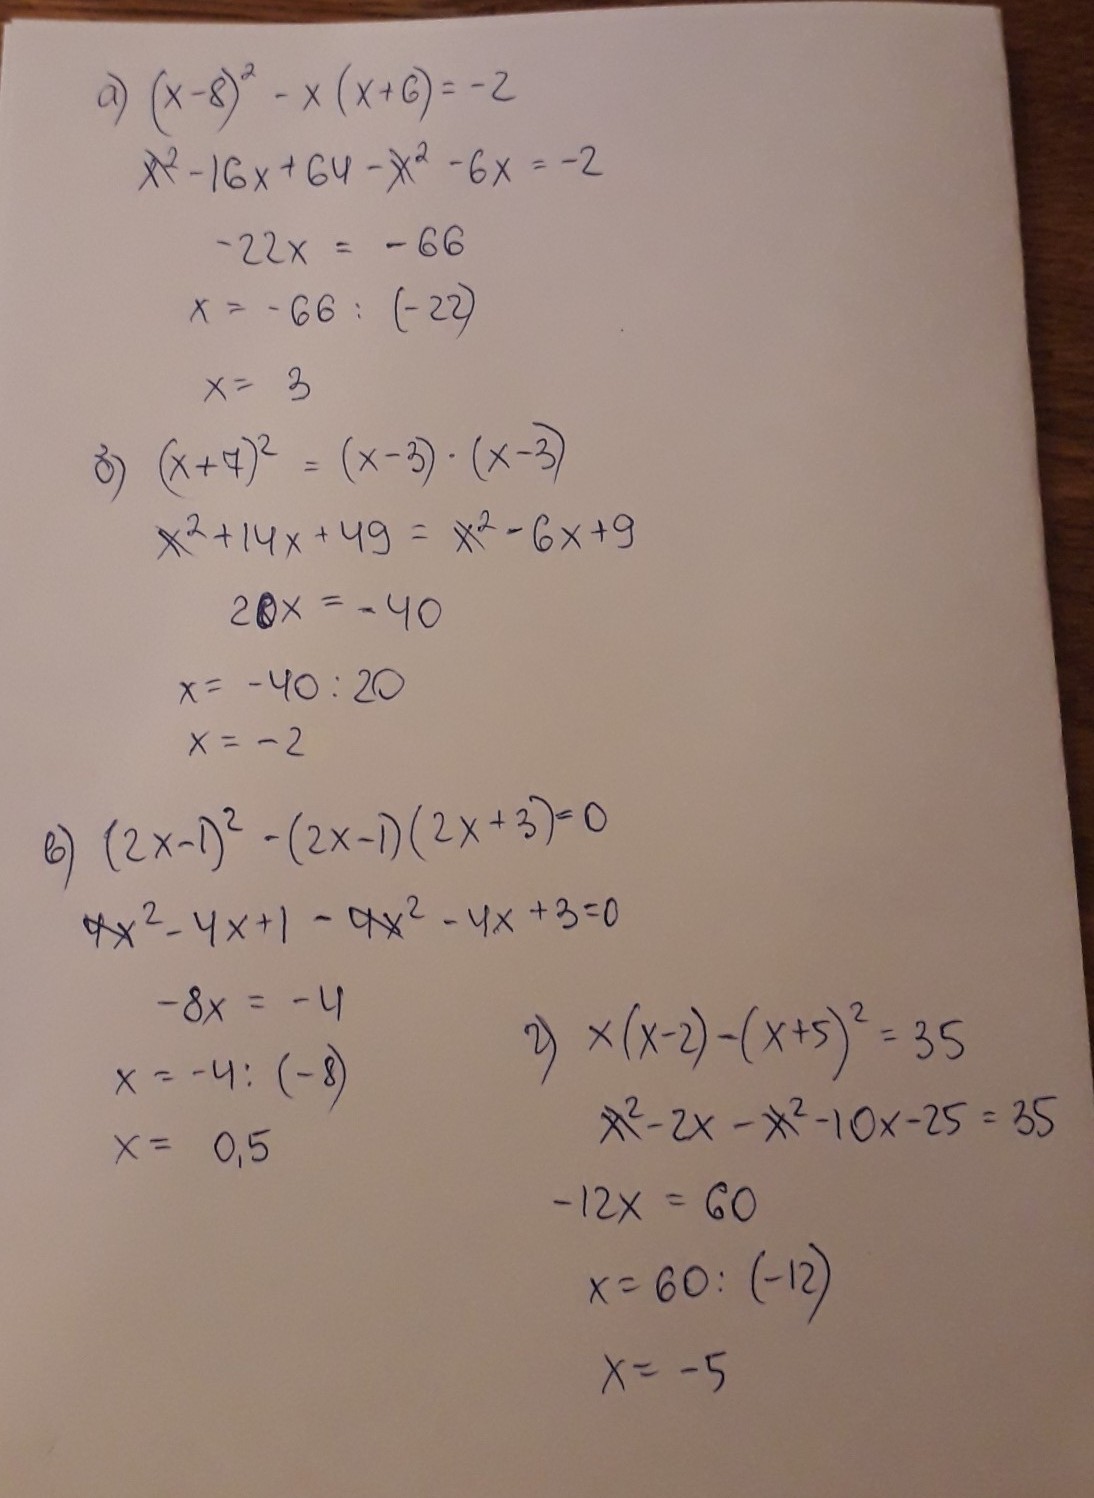 а) (x-8)² - x (x+6) = -2
x² - 16x + 64 - x² - 6x = -2
-22x = -66
x = -66 : (-22)
x = 3
б) (x+7)² = (x-3) · (x-3)
x² + 14x + 49 = x² - 6x + 9
20x = -40
x = -40 : 20
x = -2
в) (2x-1)² - (2x-1)(2x+3) = 0
4x² - 4x + 1 - 4x² - 4x + 3 = 0
-8x = -4
x = -4 : (-8)
x = 0,5
г) x(x-2) - (x+5)² = 35
x² - 2x - x² - 10x - 25 = 35
-12x = 60
x = 60 : (-12)
x = -5